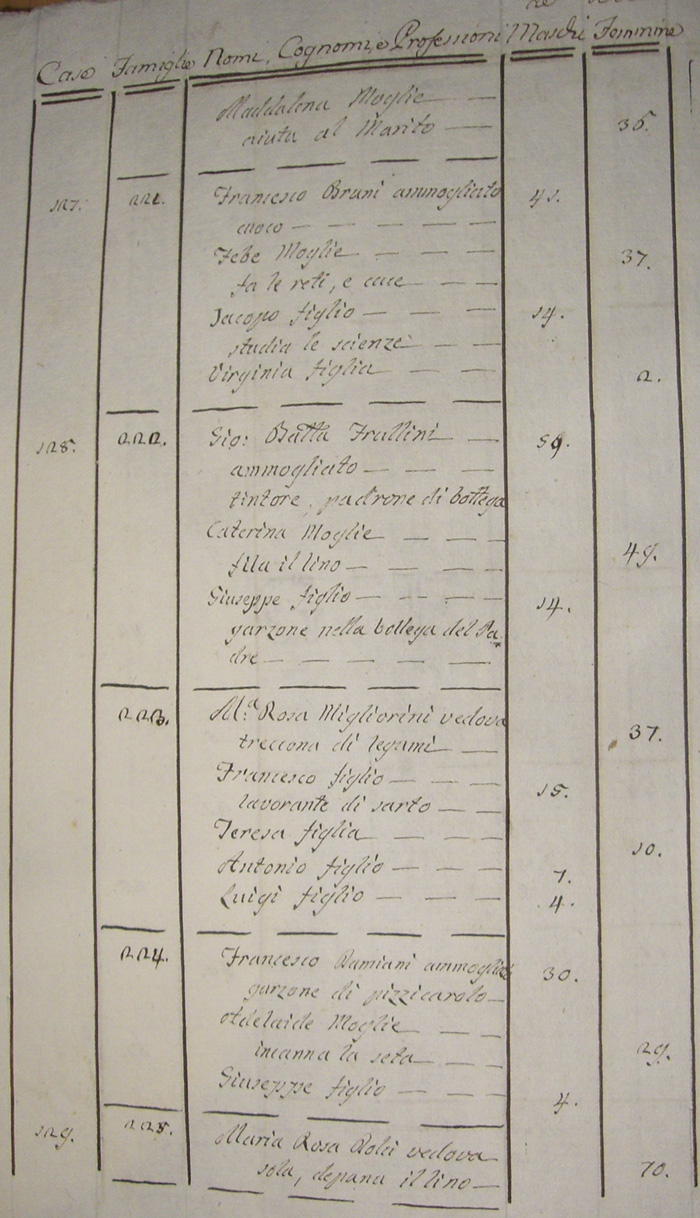 Case Famiglie Nomi, Cognomi, e Professioni Maschi Femmine
Maddalena Moglie
aiuta al Marito 36.
127. 221. Francesco Bruni ammogliato 41.
cuoco
Febe Moglie 37.
fa le reti, e cuce
Jacopo figlio 14.
studia le scienze
Virginia figlia 2.
128. 222. Gio: Batta Frullini 59.
ammogliato
tintore, padrone di bottega
Caterina Moglie 49.
fila il lino
Giuseppe figlio 14.
garzone nella bottega del Pa
dre
223. M.a Rosa Migliorini vedova 37.
treccona di legami
Francesco figlio 15.
lavorante di sarto
Teresa figlia 10.
Antonio figlio 7.
Luigi figlio 4.
224. Francesco Damiani 30.
garzone di pizzicarolo
Adelaide Moglie 29.
incanna la seta
Giuseppe figlio 4.
129. 225. Maria Rosa vedova
sola, depana il lino 70.